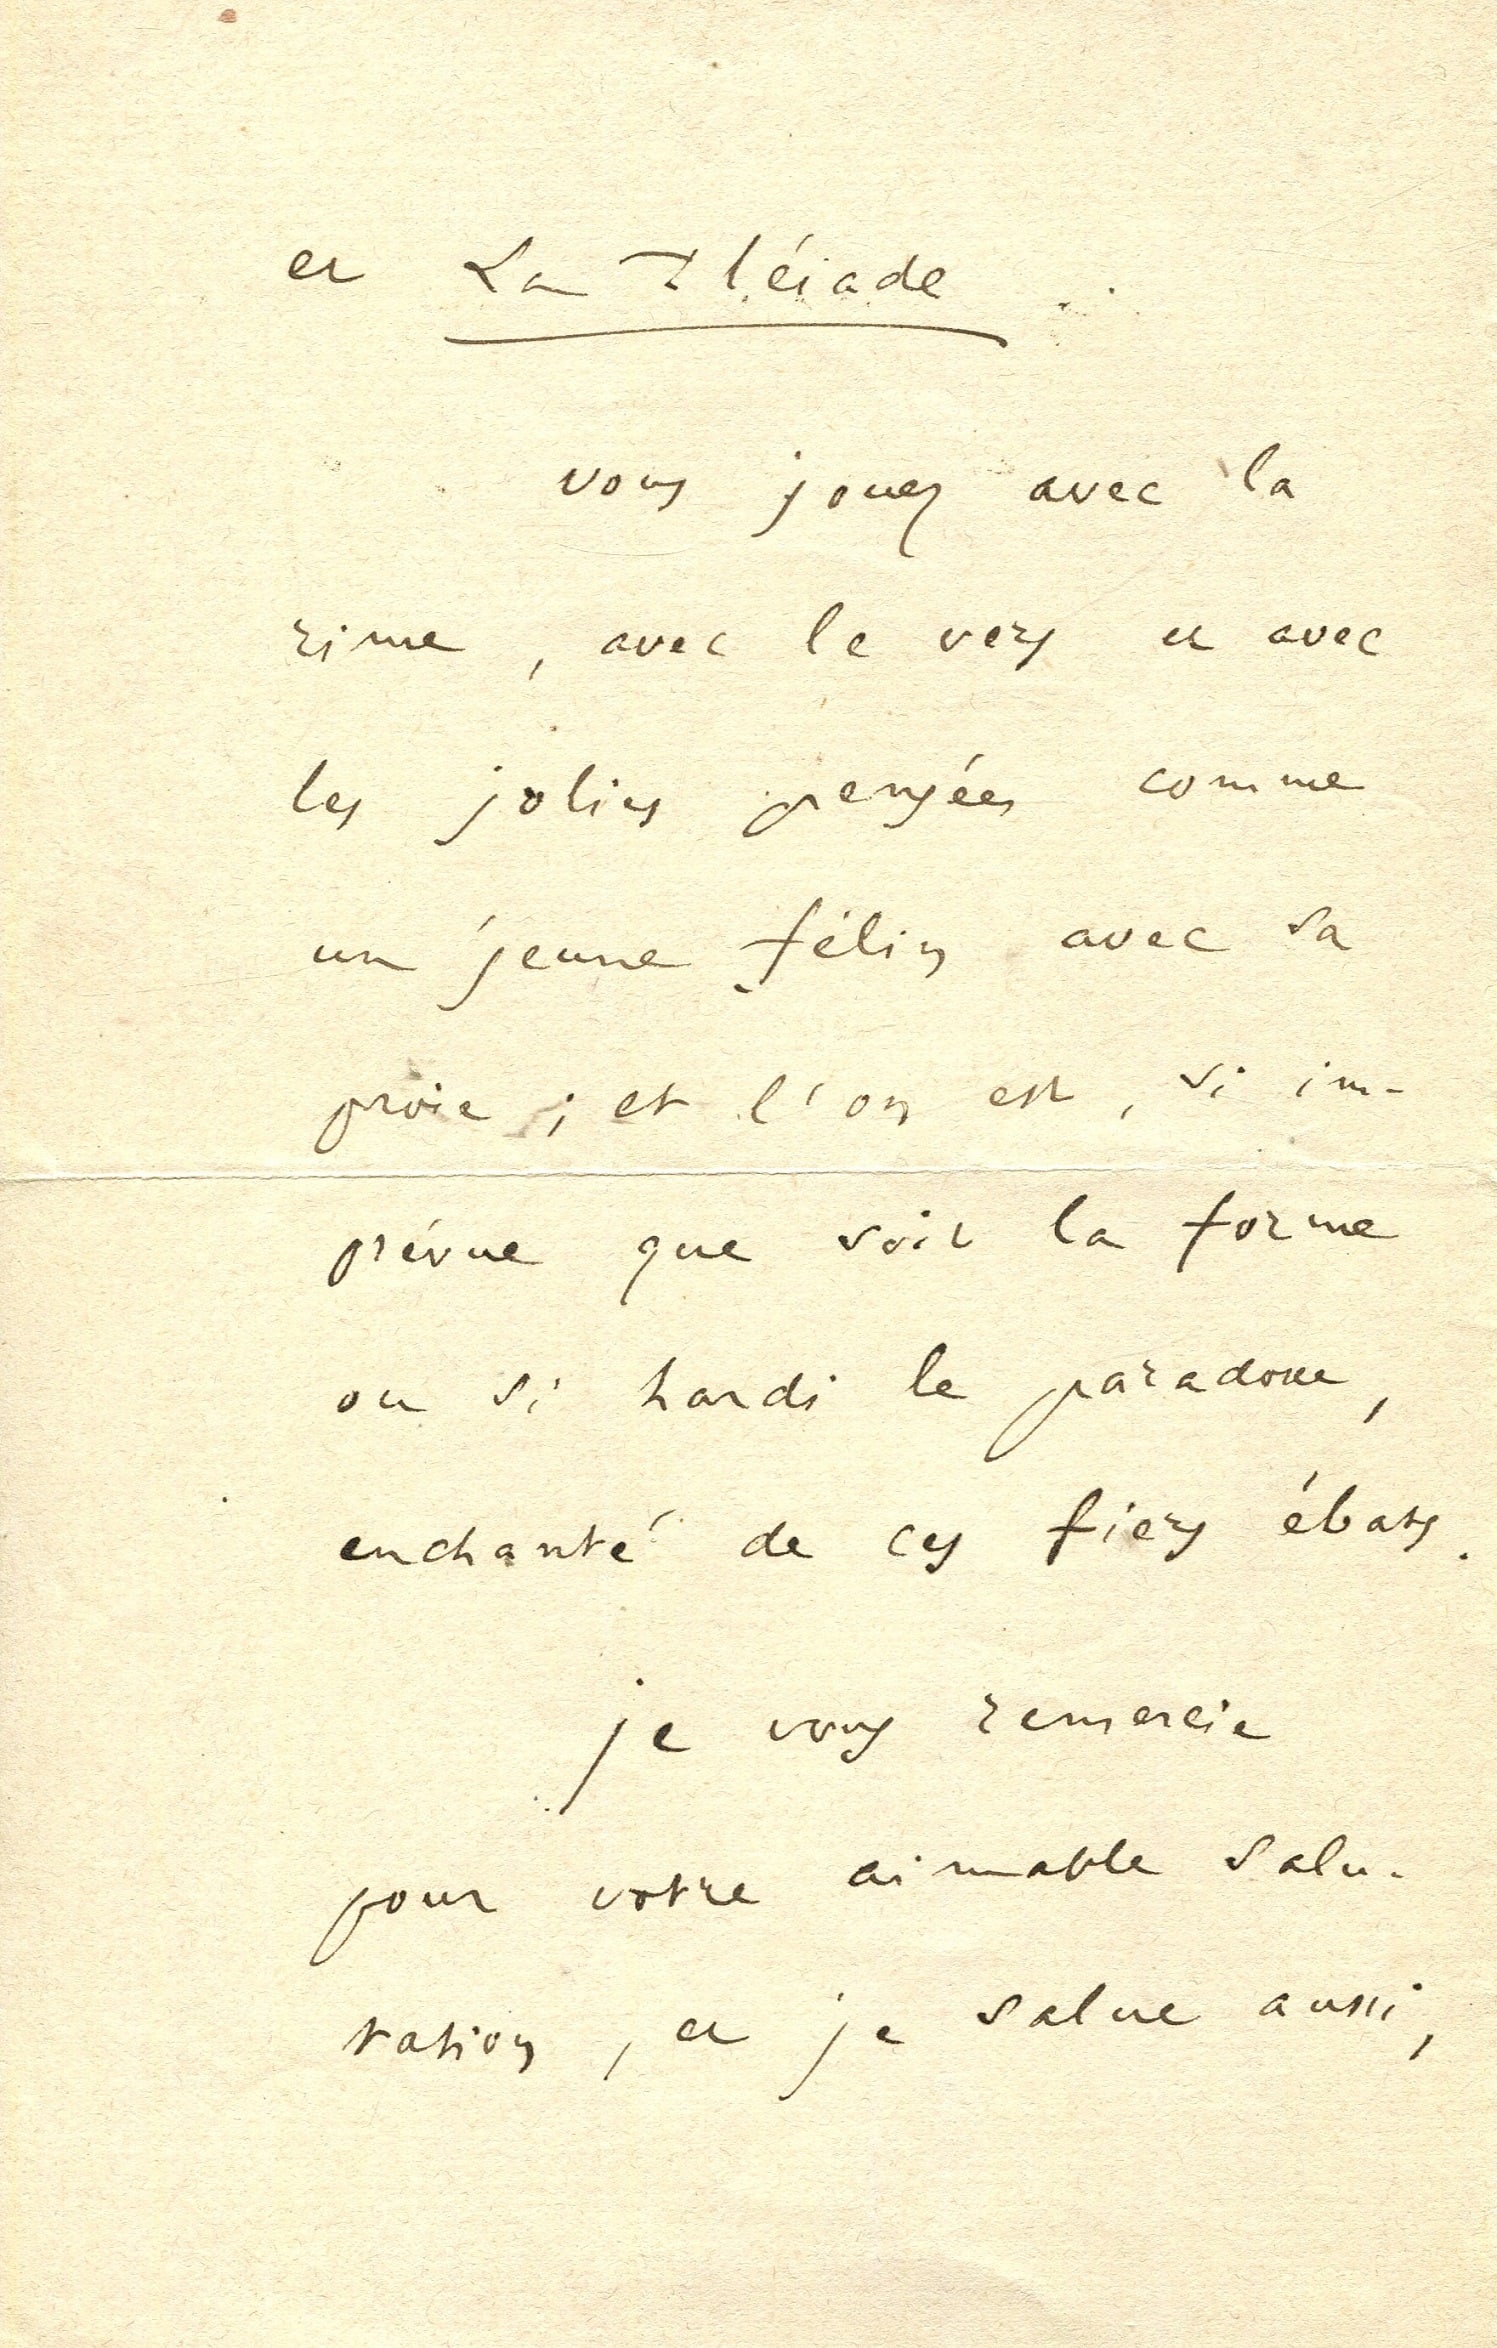 et La Pléiade.
vous jouez avec la
rime, avec le vers et avec
les jolies pensées comme
un jeune félin avec sa
proie ; et l'on est, si im-
prévue que soit la forme
ou si hardi le paradoxe,
enchanté de ces fiers ébats.
je vous remercie
pour votre aimable salu-
tation, et je salue aussi,